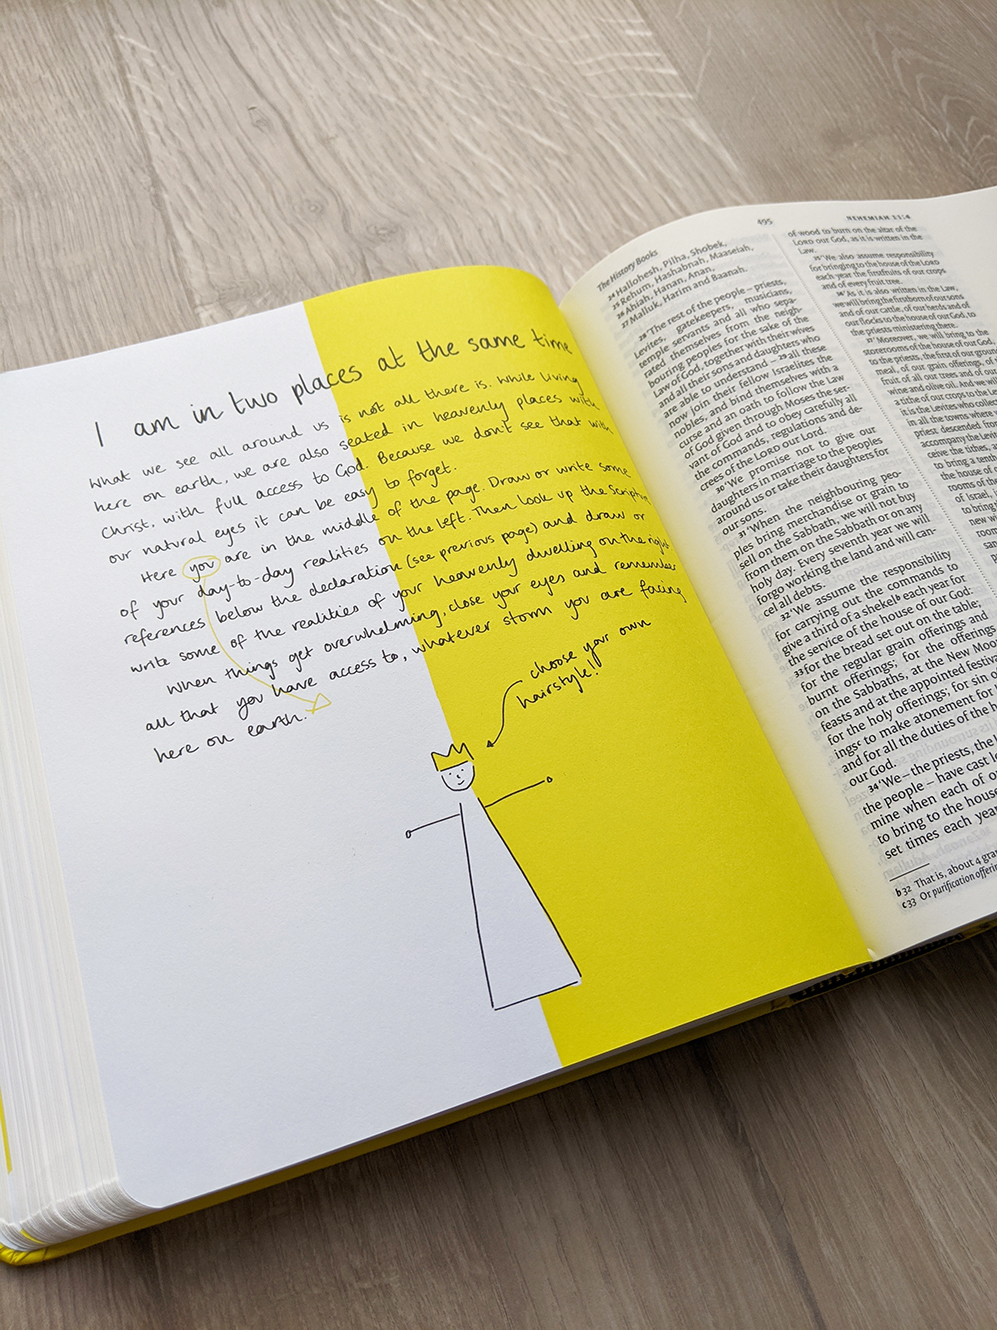 I am in two places at the same time
What we see all around us is not all there is. While living
here on earth, we are also seated in heavenly places with
Christ, with full access to God. Because we don't see that with
our natural eyes it can be easy to forget.
Here you are in the middle of the page. Draw or write some
of your day-to-day realities on the left. Then look up the Scripture
references below the declaration (see previous page) and draw or
write some of the realities of your heavenly dwelling on the right.
When things get overwhelming, close your eyes and remember
all that you have access to, whatever storm you are facing
here on earth.
choose your own
hairstyle!
The History Books
495
NEHEMIAH 11:4
24 Hallohesh, Pilha, Shobek,
25 Rehum, Hashabnah, Maaseiah,
26 Ahiah, Hanan, Anan,
27 Malluk, Harim and Baanah.
28 'The rest of the people – priests,
Levites, gatekeepers, musicians,
temple servants and all who sepa-
rated themselves from the neigh-
bouring peoples for the sake of the
Law of God, together with their wives
and all their sons and daughters who
are able to understand – 29 all these
now join their fellow Israelites the
nobles, and bind themselves with a
curse and an oath to follow the Law
of God given through Moses the ser-
vant of God and to obey carefully all
the commands, regulations and de-
crees of the LORD our Lord.
30 'We promise not to give our
daughters in marriage to the peoples
around us or take their daughters for
our sons.
31 'When the neighbouring peo-
ples bring merchandise or grain to
sell on the Sabbath, we will not buy
from them on the Sabbath or on any
holy day. Every seventh year we will
forgo working the land and will can-
cel all debts.
32 'We assume the responsibility
for carrying out the commands to
give a third of a shekel b each year for
the service of the house of our God:
33 for the bread set out on the table;
for the regular grain offerings and
burnt offerings; for the offerings
on the Sabbaths, at the New Moon
feasts and at the appointed festivals;
for the holy offerings; for sin offer-
ings c to make atonement for
and for all the duties of the h
our God.
34 'We – the priests, the L
the people – have cast lo
mine when each of o
to bring to the house
set times each year
b 32 That is, about 4 gra
c 33 Or purification offerin
of wood to burn on the altar of the
LORD our God, as it is written in the
Law.
35 'We also assume responsibility
for bringing to the house of the LORD
each year the firstfruits of our crops
and of every fruit tree.
36 'As it is also written in the Law,
we will bring the firstborn of our sons
and of our cattle, of our herds and of
our flocks to the house of our God, to
the priests ministering there.
37 'Moreover, we will bring to the
storerooms of the house of our God,
to the priests, the first of our ground
meal, of our grain offerings, of
fruit of all our trees and of our
wine and olive oil. And we wil
a tithe of our crops to the Lev
it is the Levites who collec
in all the towns where
priest descended from
accompany the Levit
ceive the tithes, a
to bring a tenth
the house of
rooms of the
of Israel,
to bring
new wi
room
san